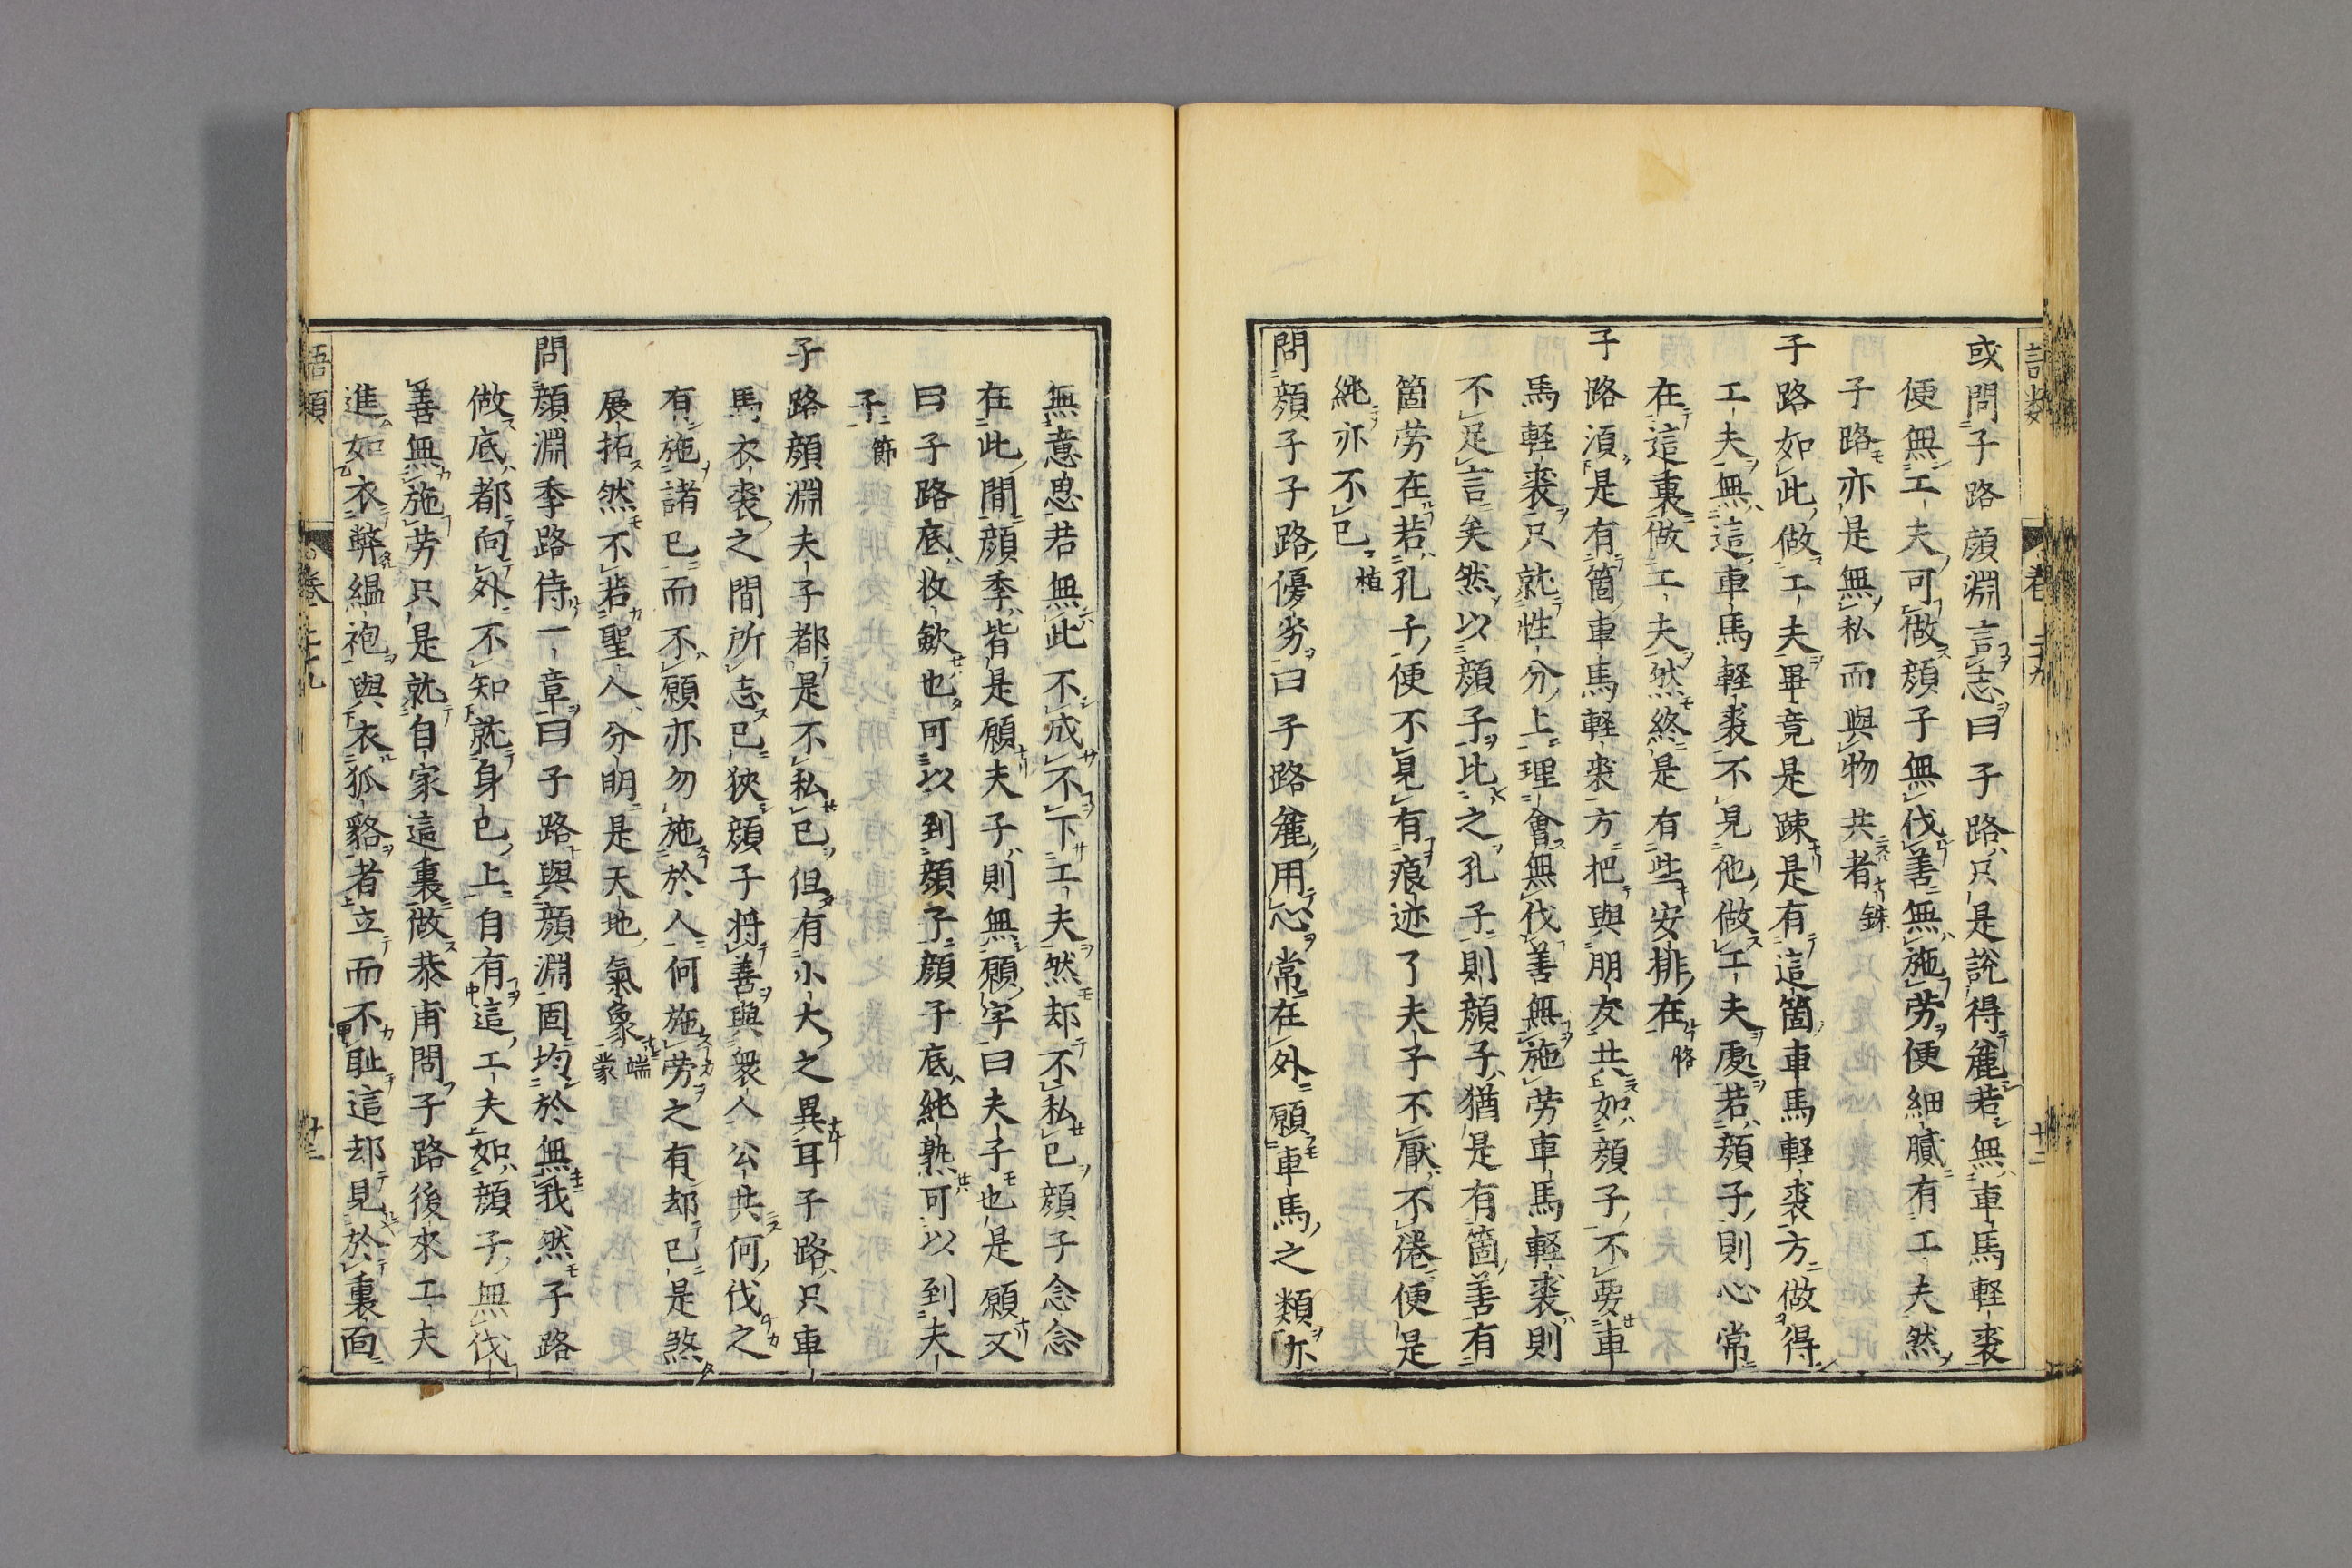 或問子路顔淵言志曰子路只是說得麄若無車馬軽裘
便無工夫可做顔子無伐善無施劳便細膩有工夫然
子路亦是無私而與物共者銖
子路如此做工夫畢竟是踈是有這箇車馬軽裘方做得
工夫無這車馬軽裘不見他做工夫處若顔子則心常
在這裏做工夫然終是有些安排在恪
子路湏是有箇車馬軽裘方把與朋友共如顔子不要車
馬軽裘只就性分上理會無伐善無施劳車馬軽裘則
不足言矣然以顔子比之孔子則顔子猶是有箇善有
箇劳在若孔子便不見有痕迹了夫子不厭不倦便是
純亦不已植
問顔子子路優劣曰子路麄用心常在外願車馬之類亦
無意思若無此不成不下工夫然却不私已顔子念念
在此間顔季皆是願夫子則無願字曰夫子也是願又
曰子路底收歛也可以到顔子顔子底純熟可以到夫
子節
子路顔淵夫子都是不私已但有小大之異耳子路只車
馬衣裘之間所志已狹顔子将善與衆人公共何伐之
有施諸已而不願亦勿施於人何施劳之有却已是煞
展拓然不若聖人分明是天地氣象端蒙
問顔淵季路侍一章曰子路與顔淵固均於無我然子路
做底都向外不知就身已上自有這工夫如顔子無伐
善無施劳只是就自家這裏做恭甫問子路後來工夫
進如衣弊緼袍與衣狐貉者立而不耻這却見於裏面
語類
卷二十九
十三